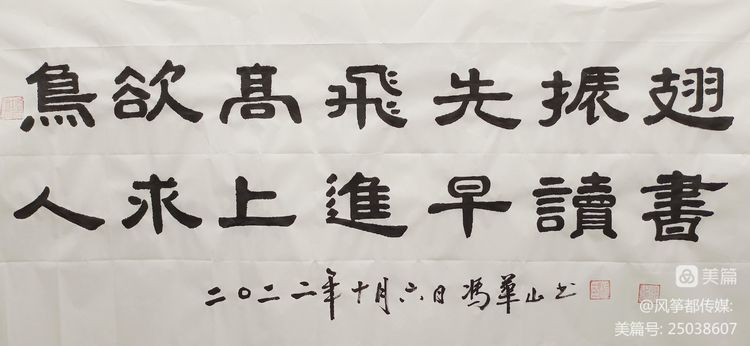 鳥欲高飛先振翅
人求上進早讀書
二〇二二年十月六日馮華山书
美篇
@风筝都传媒:
美篇号: 25038607